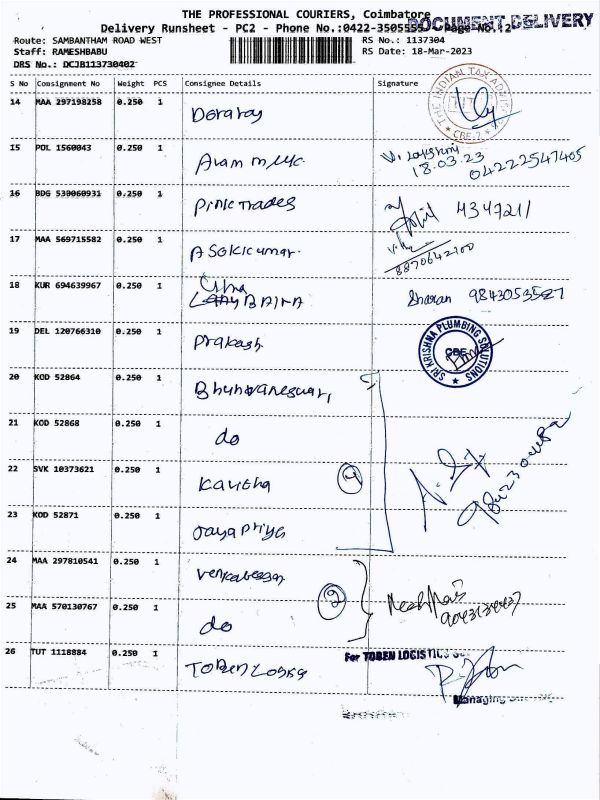 THE PROFESSIONAL COURIERS, Coimbatore
DOCUMENT DELIVERY
Delivery Runsheet - PC2 - Phone No.:0422-3505555 Page No.:2
Route: SAMBANTHAM ROAD WEST RS No.: 1137304
Staff: RAMESHBABU RS Date: 18-Mar-2023
DRS No.: DCJB113730402
S No Consignment No Weight PCS Consignee Details Signature
14 MAA 297198258 0.250 1
THE INDIAN TAX ADVISOR
CBE-2
15 POL 1560043 0.250 1
V. Lakshmi
18.03.23
04222547405
16 BDG 530060931 0.250 1 Pink Trades
4347211
17 MAA 569715582 0.250 1 ASOKKumar.
8870642100
18 KUR 694639967 0.250 1
Sharan 9843053527
19 DEL 120766310 0.250 1 Prakash
SRI KRISHNA PLUMBING SOLUTIONS
CBE
20 KOD 52864 0.250 1 Bhuvaneswari
21 KOD 52868 0.250 1 do
22 SVK 10373621 0.250 1 Kavitha 4
23 KOD 52871 0.250 1 Jaya Priya
24 MAA 297810541 0.250 1 Venkatesan
25 MAA 570130767 0.250 1 do 2
26 TUT 1118884 0.250 1
For TOBEN LOGISTICS
Managing